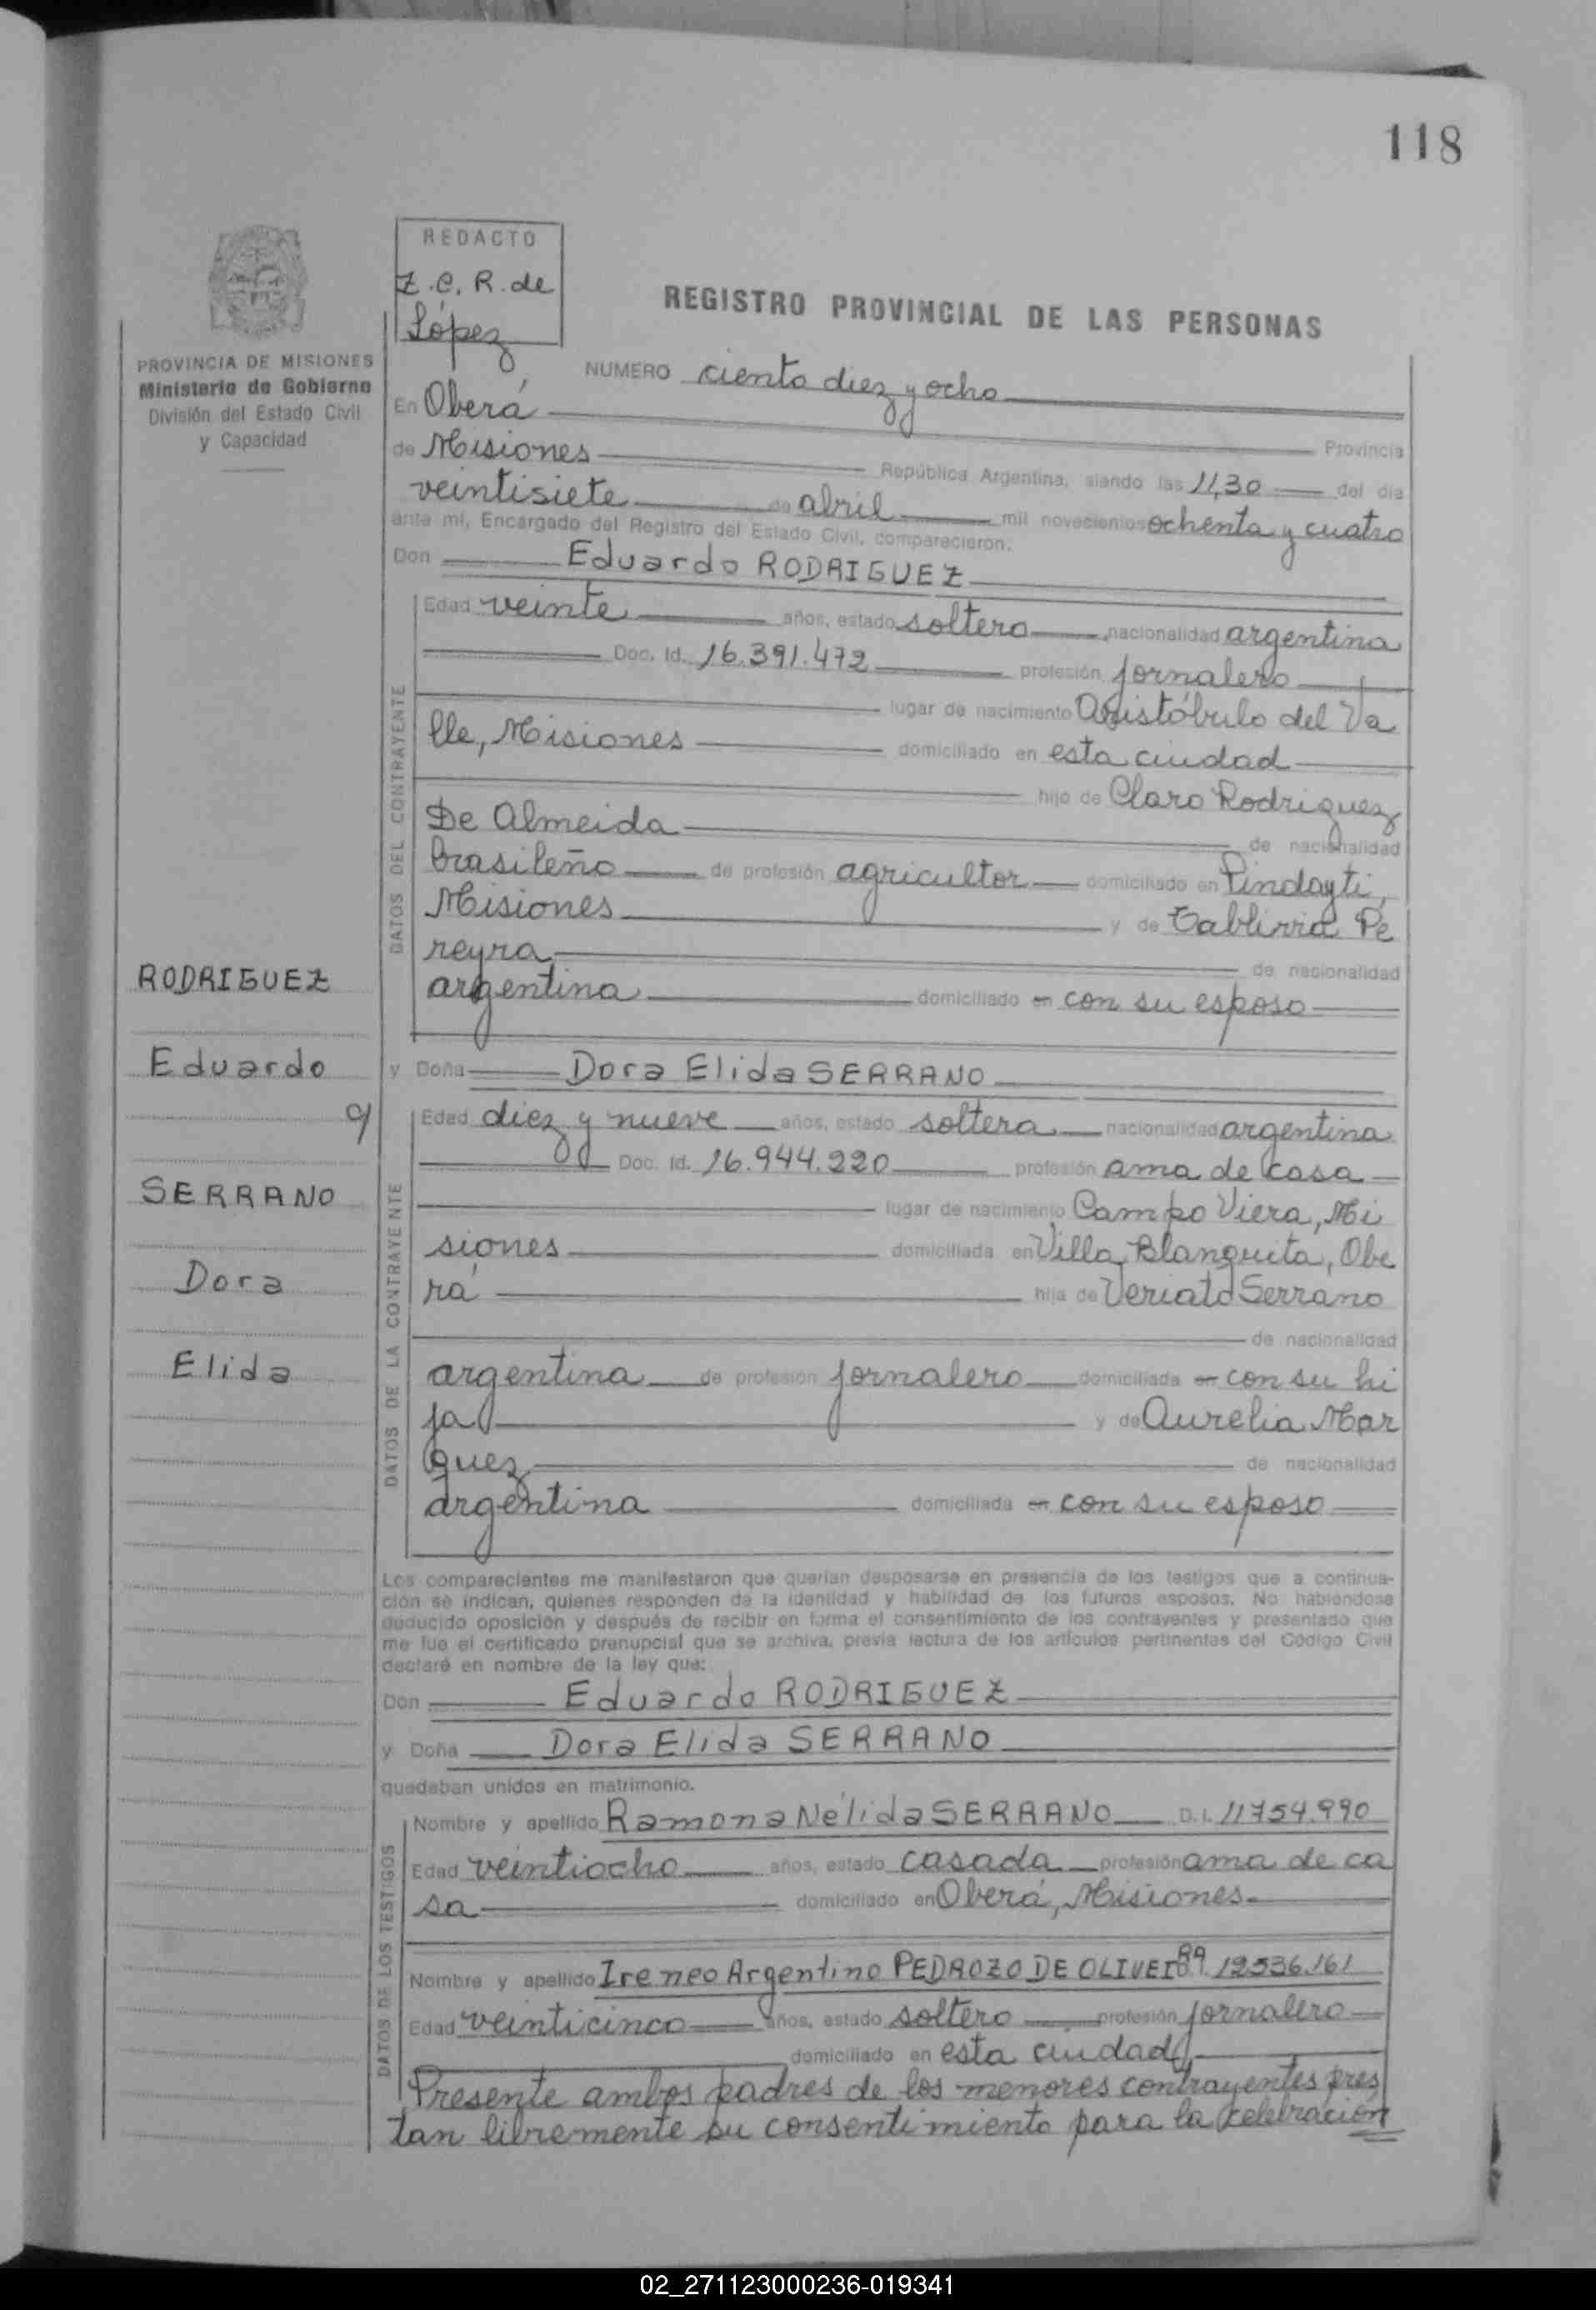 118
REDACTO
Z.C.R. de
López
REGISTRO PROVINCIAL DE LAS PERSONAS
PROVINCIA DE MISIONES
Ministerio de Gobierno
División del Estado Civil
y Capacidad
NUMERO ciento diez y ocho
En Oberá Provincia
de Misiones República Argentina, siendo las 11,30 del dia
veintisiete de abril mil novecientos ochenta y cuatro
ante mi, Encargado del Registro del Estado Civil, comparecieron:
Don Eduardo RODRIGUEZ
DATOS DEL CONTRAYENTE
Edad veinte años, estado soltero nacionalidad argentina
Doc. Id. 16.391.472 profesión jornalero
lugar de nacimiento Aristóbulo del Va
lle, Misiones domiciliado en esta ciudad
hijo de Claro Rodriguez
De Almeida de nacionalidad
brasileño de profesión agricultor domiciliado en Pindayti,
Misiones y de Pe
reyra de nacionalidad
argentina domiciliado en con su esposo
RODRIGUEZ
Eduardo
y
SERRANO
Dora
Elida
y Doña Dora Elida SERRANO
DATOS DE LA CONTRAYENTE
Edad diez y nueve años, estado soltera nacionalidad argentina
Doc. Id. 16.944.220 profesión ama de casa
lugar de nacimiento Campo Viera, Mi
siones domiciliada en Villa Blanquita, Obe
rá hija de Veriato Serrano
de nacionalidad
argentina de profesión jornalero domiciliada en con su hi
ja y de Aurelia Mar
quez de nacionalidad
argentina domiciliada en con su esposo
Los comparecientes me manifestaron que querían desposarse en presencia de los testigos que a continua-
ción se indican, quienes responden de la identidad y habilidad de los futuros esposos. No habiéndose
deducido oposición y después de recibir en forma el consentimiento de los contrayentes y presentado que
me fue el certificado prenupcial que se archiva, previa lectura de los artículos pertinentes del Código Civil
declaré en nombre de la ley que:
Don Eduardo RODRIGUEZ
y Doña Dora Elida SERRANO
quedaban unidos en matrimonio.
DATOS DE LOS TESTIGOS
Nombre y apellido Ramona Nélida SERRANO D.I. 11754.990
Edad veintiocho años, estado casada profesión ama de ca
sa domiciliado en Oberá, Misiones.
Nombre y apellido Ireneo Argentino PEDROZO DE OLIVEIRA D.I. 12536.161
Edad veinticinco años, estado soltero profesión jornalero
domiciliado en esta ciudad
Presente ambos padres de los menores contrayentes pres
tan libremente su consentimiento para la celebración
02_271123000236-019341